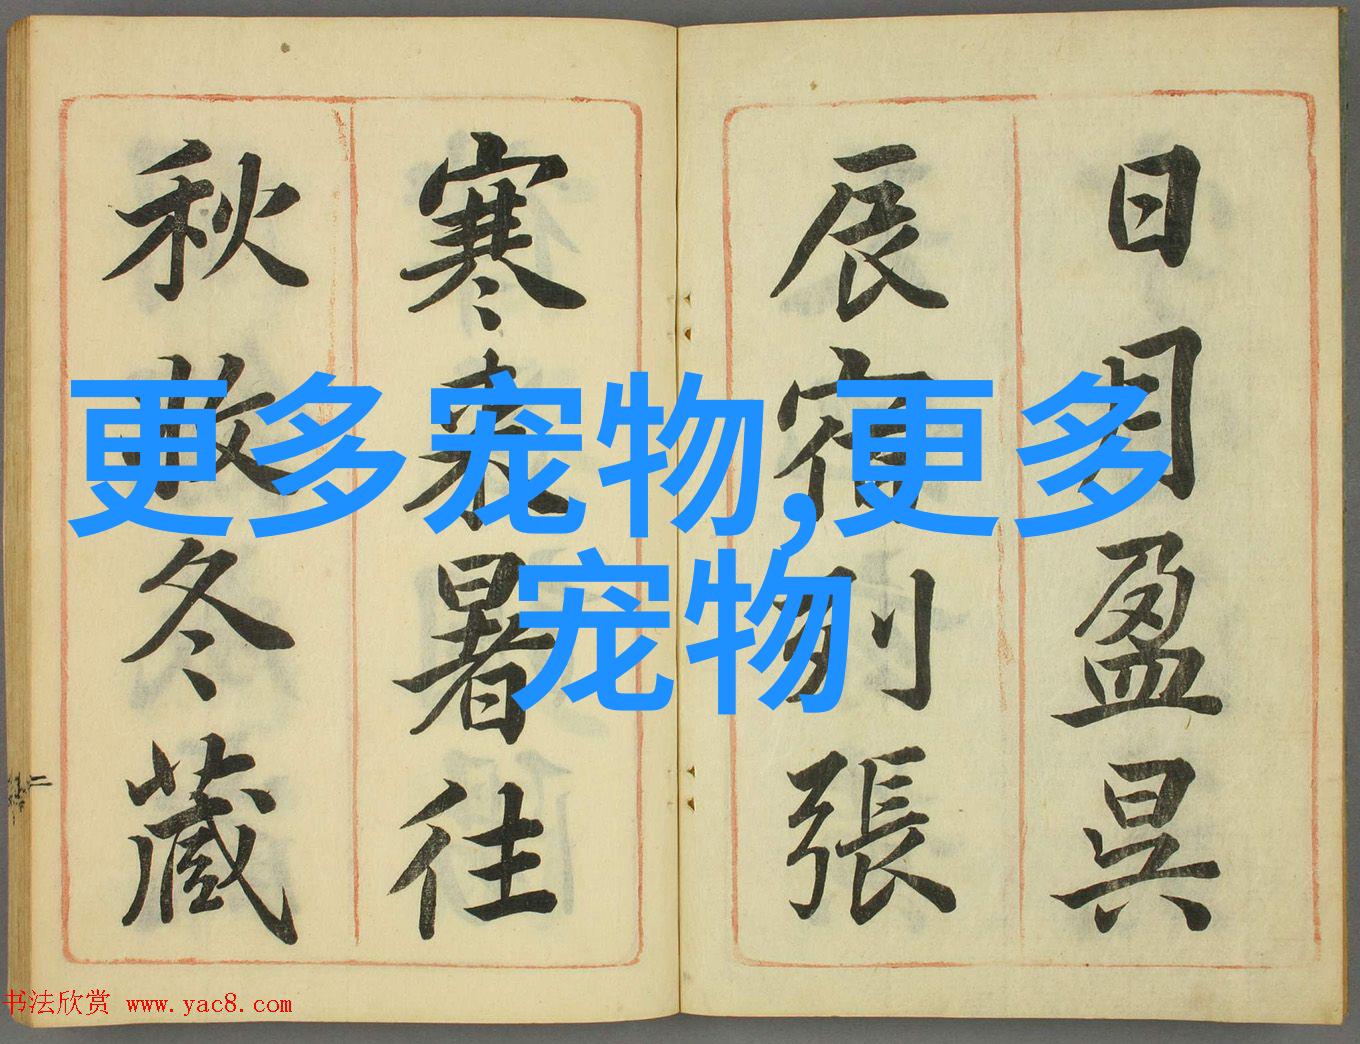 日月盈昃
辰宿列張
寒来暑往
秋收冬藏
更多宠物,更多
宠物
二
书法欣赏 www.yac8.com